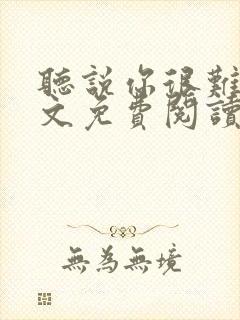 聽説你很難
文免費閱讀
無為無境